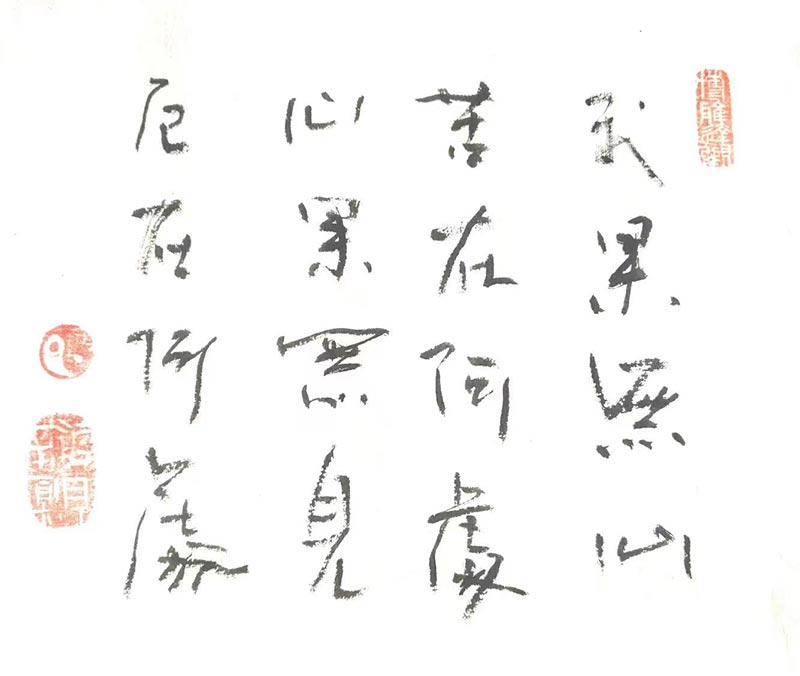 我果無心
苦在何處
心果無見
厄在何處